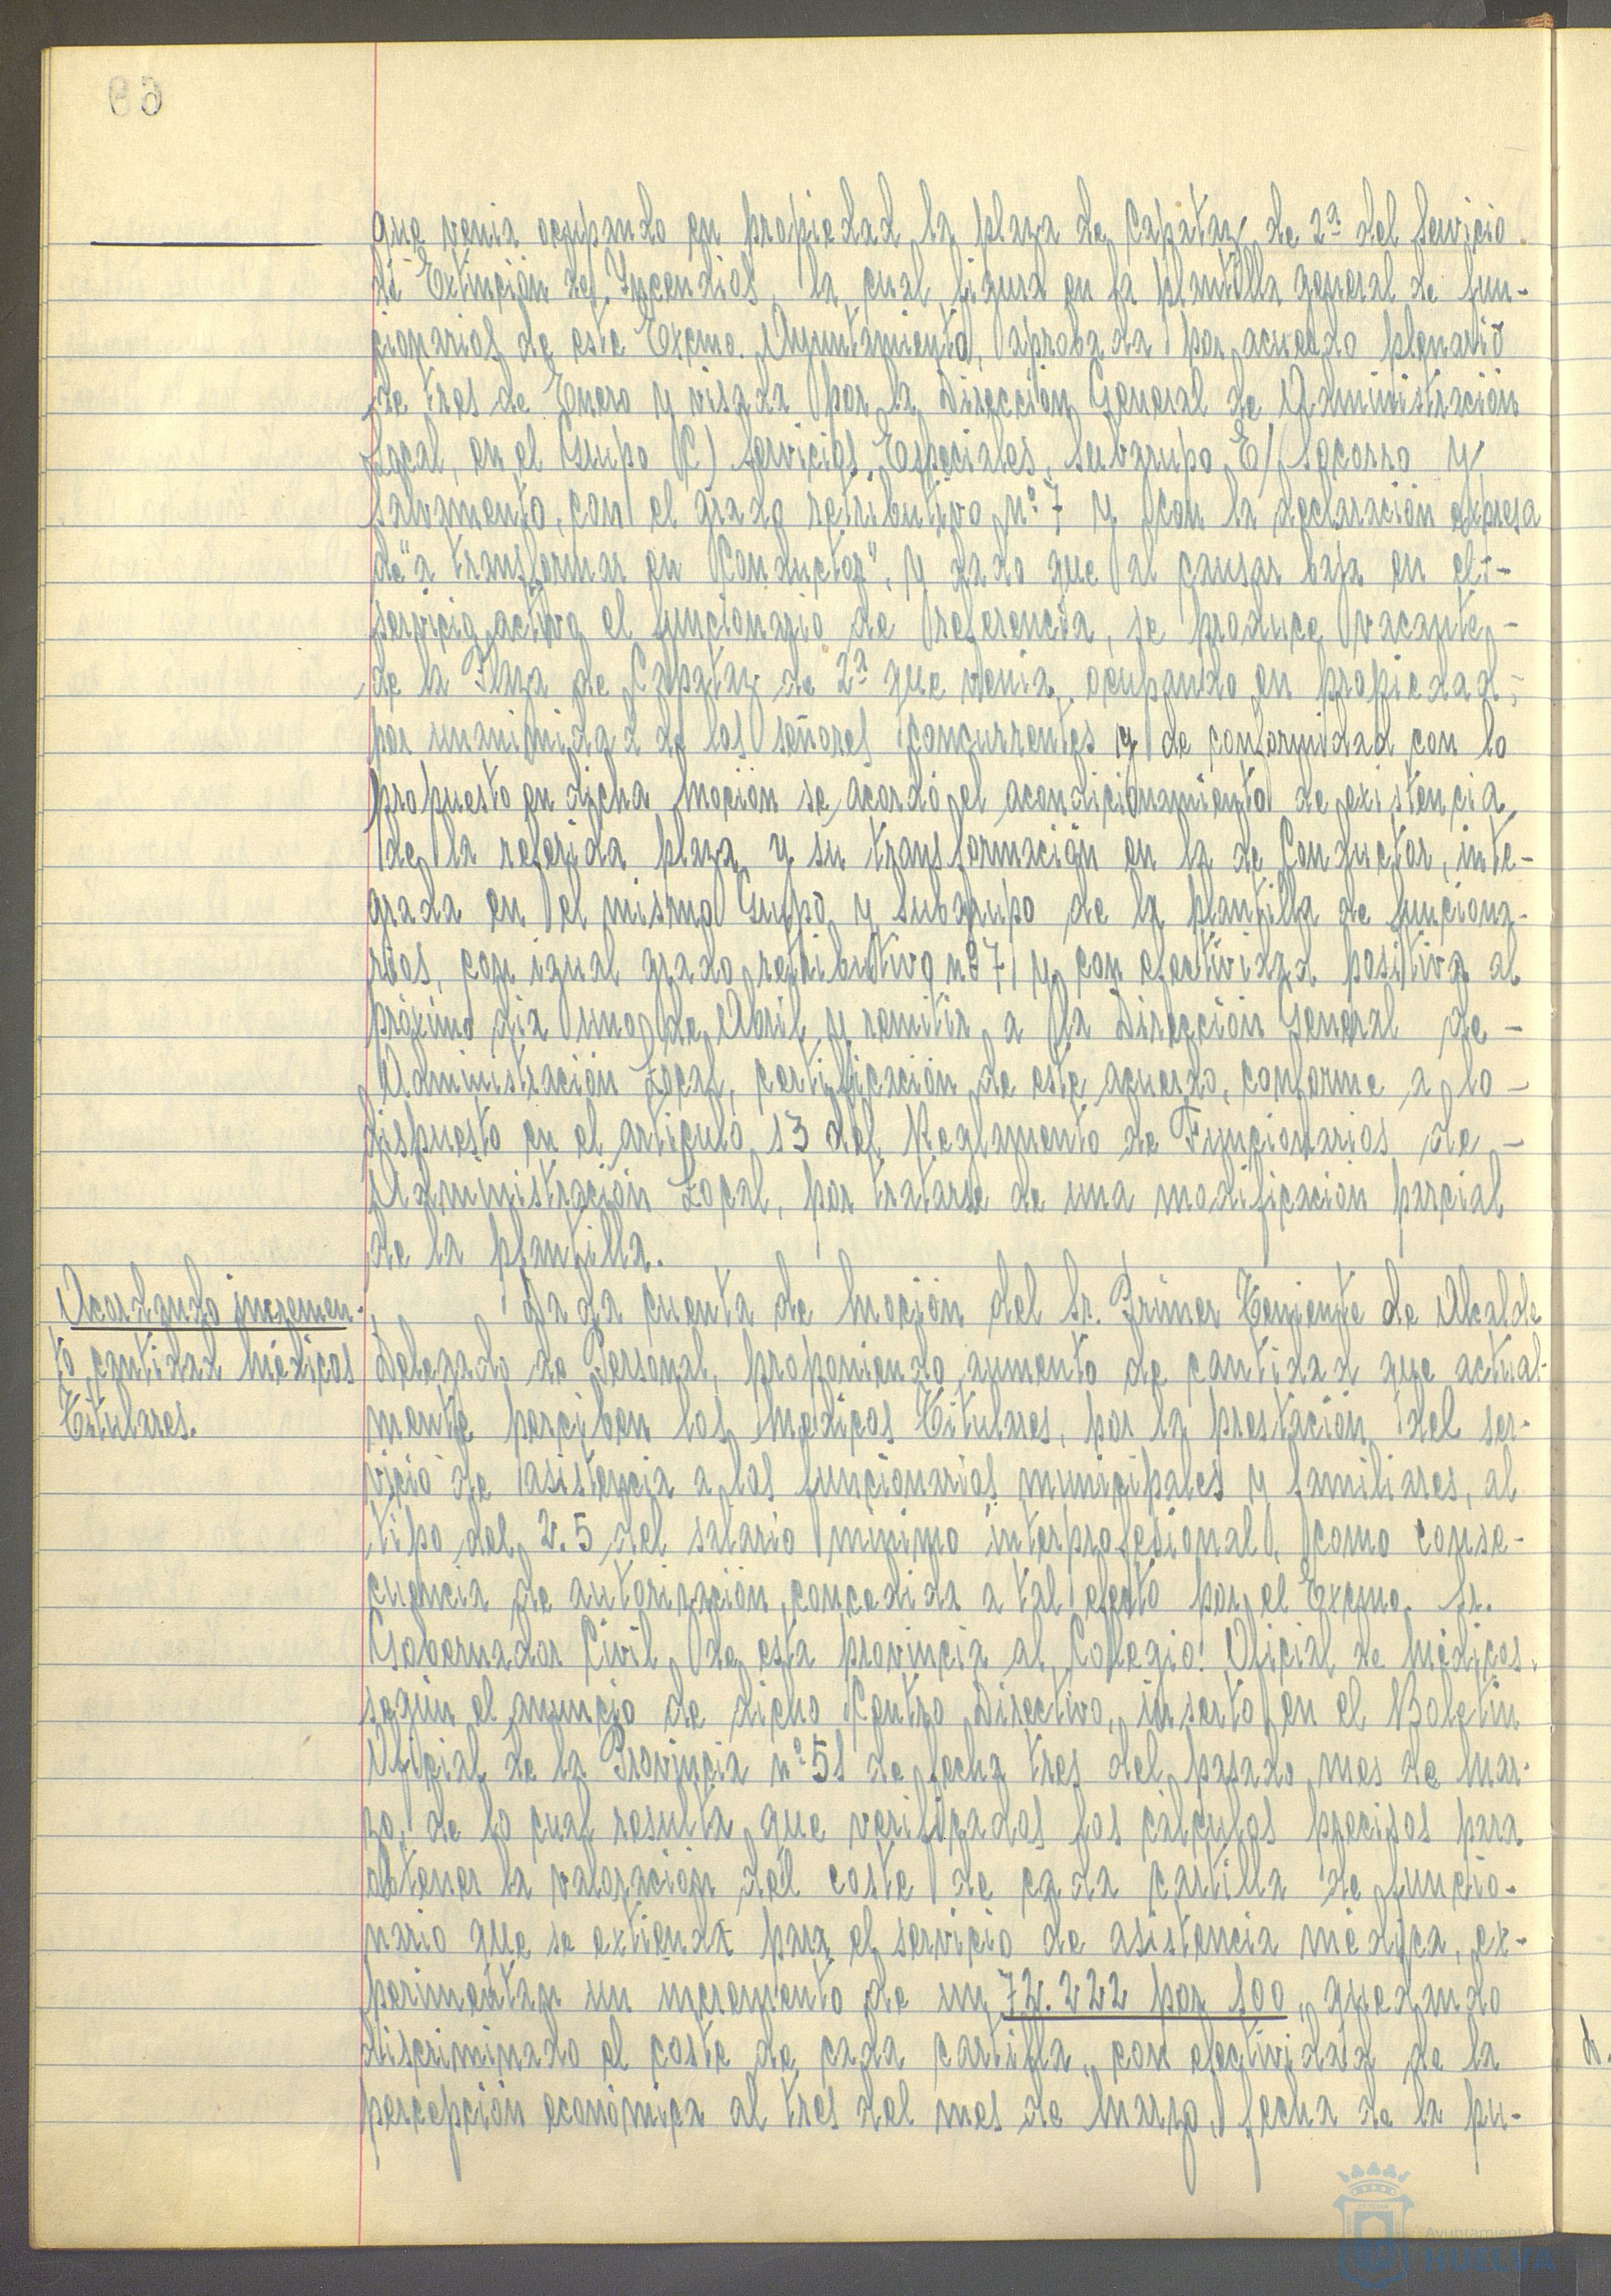 que venia ocupando en propiedad la plaza de Capataz de 2ª del Servicio
de Extinción de Incendios, la cual figura en la plantilla general de fun-
cionarios de este Excmo. Ayuntamiento, aprobada por acuerdo plenario
de tres de Enero y visada por la Dirección General de Administración
Local, en el Grupo C) Servicios Especiales, Subgrupo E/ Socorro y
Salvamento, con el grado retributivo nº 7 y con la declaración expresa
de "a transformar en Conductor", y dado que al causar baja en el -
servicio activo el funcionario de referencia, se produce vacante -
de la Plaza de Capataz de 2ª que venia ocupando en propiedad,
por unanimidad de los señores concurrentes y de conformidad con lo
propuesto en dicha moción se acordó el acondicionamiento de existencia
de la referida plaza y su transformación en la de Conductor, inte-
grada en el mismo Grupo y Subgrupo de la plantilla de funciona-
rios, con igual grado retributivo nº 7 y con efectividad positiva al
próximo dia uno de Abril y remitir a la Dirección General de -
Administración Local, certificación de este acuerdo, conforme a lo -
dispuesto en el articulo 13 del Reglamento de Funcionarios de -
Administración Local, por tratarse de una modificación parcial
de la plantilla.
Acordando incremen-
to cantidad médicos
Titulares.
Dada cuenta de moción del Sr. Primer Teniente de Alcalde
Delegado de Personal, proponiendo aumento de cantidad que actual-
mente perciben los Médicos Titulares, por la prestación del ser-
vicio de asistencia a los funcionarios municipales y familiares, al
tipo del 2.5 del salario mínimo interprofesional, como conse-
cuencia de autorización concedida a tal efecto por el Excmo. Sr.
Gobernador Civil de esta provincia al Colegio Oficial de Médicos,
según el anuncio de dicho Centro Directivo, inserto en el Boletin
Oficial de la Provincia nº 51 de fecha tres del pasado mes de Mar-
zo, de lo cual resulta que verificados los cálculos precisos para
obtener la valoración del coste de cada cartilla de funcio-
nario que se extienda para el servicio de asistencia médica, ex-
perimentan un incremento de un 72.222 por 100, quedando
discriminado el coste de cada cartilla, con efectividad de la
percepción económica al tres del mes de Marzo, fecha de la pu-
Ayuntamiento de
HUELVA